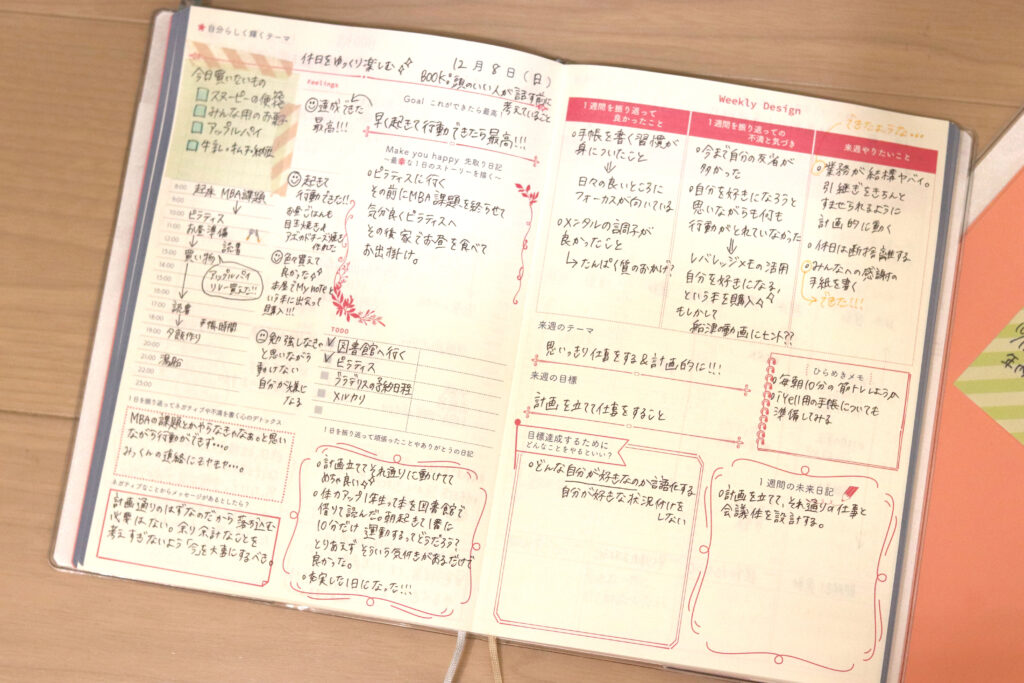 ★自分らしく輝くテーマ
休日をゆっくり楽しむ
12月8日(日)
BOOK:頭のいい人が話す前に
考えていること
今日買いたいもの
スヌーピーの便箋
みんな用のお菓子
アップルパイ
8:00 起床 MBA課題
9:00
10:00
11:00 ピラティス
12:00 お昼準備
13:00 読書
14:00
15:00 買い物
16:00 アップルパイ
17:00
18:00 読書
19:00 手帳時間
20:00 夕飯作り
21:00
22:00 湯船
23:00
feelings
達成できた
最高!!!
起きて
行動できた!!
お昼ごはんも
目玉焼き
作れた
色々買えて
良かった
本屋でMy noteと
いう本に出会って
購入!!!
勉強しなきゃ
と思いながら
動けない
自分が嫌に
なる
Goal これができたら最高
早く起きて行動できたら最高!!!
Make you happy 先取り日記
~最幸な1日のストーリーを描く~
○ピラティスに行く
その前にMBA課題を終らせて
気分良くピラティスへ
その後家でお昼を食べて
お出掛け。
TODO
図書館へ行く
ピラティス
メルカリ
1日を振り返ってネガティブや不満を書く心のデトックス
MBAの課題とかやらなきゃなぁっと思い
ながら行動ができず…。
みっくんの連絡にもやもや…。
ネガティブなことからメッセージがあるとしたら?
計画通りのはずなのだから落ち込む
必要はない。余り余計なことを
考えすぎないよう「今を大事にするべき。
1日を振り返って頑張ったことやありがとうの日記
○計画立ててそれ通りに動けて
めちゃ良い
○体力アップ1年生って本を図書館で
借りて読んだ。朝起きて1番に
10分だけ運動するってどうだろう?
とりあえずそういう気付きがあるだけで
良かった。
○充実した1日になった!!!
Weekly Design
1週間を振り返って
良かったこと
○手帳を書く習慣が
身についたこと
日々の良いところに
フォーカスが向いている
○メンタルの調子が
良かったこと
たんぱく質のおかげ?
1週間を振り返っての
不満と気づき
○今まで自分の反省が
多かった
○自分を好きになろうと
思いながらも何も
行動がとれていなかった
レバレッジメモの活用
自分を好きになる、
という本を購入
もしかして
船津動画にヒント??
できたような…
来週やりたいこと
○業務が結構ヤバイ。
引継ぎをきちんと
すませられるように
計画的に動く
○休日は断捨離する
○みんなへの感謝の
手紙を書く
できた!!!
来週のテーマ
思いっきり仕事をする&計画的に!!!
来週の目標
計画を立てて仕事をすること
ひらめきメモ
○毎朝10分の筋トレしようか
○iYell用の手帳についても
準備してみる
目標達成するために
どんなことをやるといい?
○どんな自分が好きなのか言語化する
自分が好きな状況付けを
しない
1週間の未来日記
○計画を立て、それ通りの仕事と
会議体を設計する。